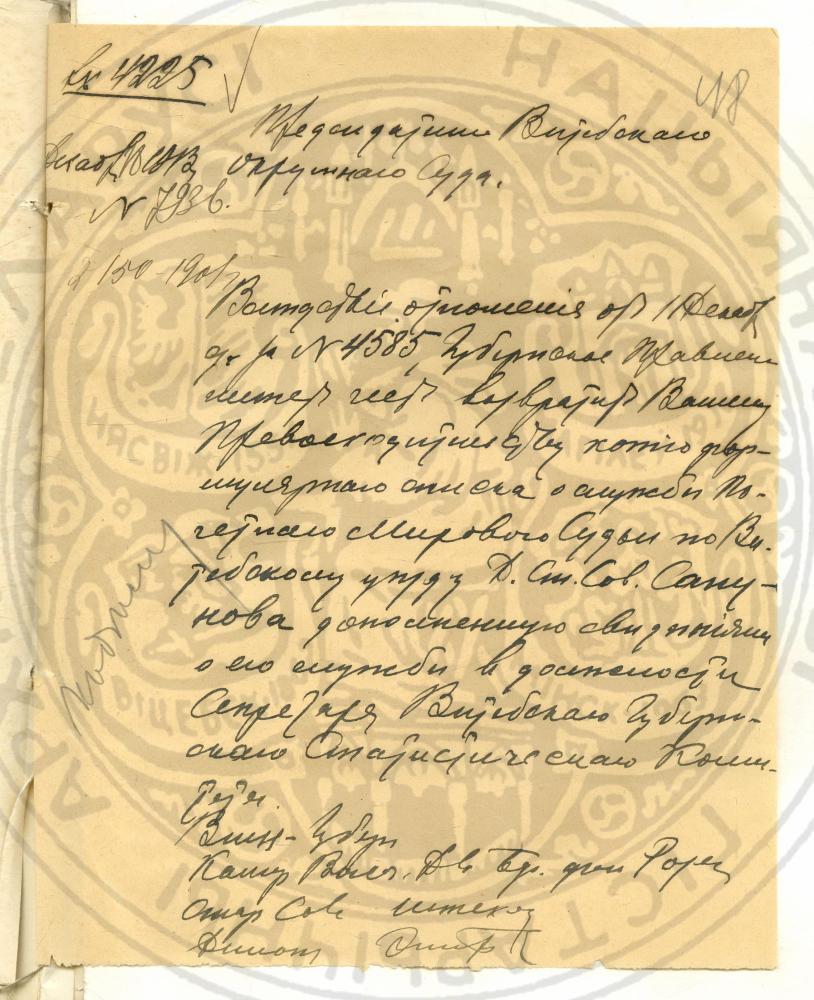 Вх 4225
48
Предсѣдателю Витебскаго
Окружнаго Суда.
Декабря
N 7936.
Вслѣдствіе отношенія отъ 11 Декаб
г. за N 4585, Губернское Правлені
имеетъ честь возвратить Вашему
Превосходительству копію фор-
мулярнаго списка о службѣ По-
четнаго Мирового Судьи по Ви-
тебскому уѣзду Д. Ст. Сов. Сапу-
нова дополненную свѣдѣніями
о его службѣ въ должности
Секретаря Витебскаго Губерн-
скаго Статистическаго Коми-
тета.
Вице-Губер
Камер Выс. Дв. Бр. фон
Стар Сов